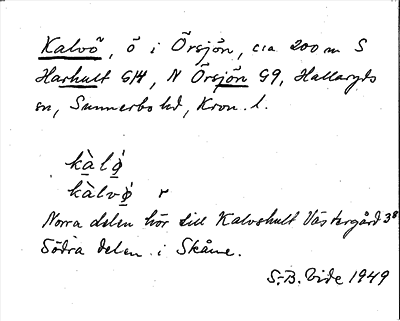 Kalvö, ö i Örsjön, c:a 200 m S
Harhult G14, N Örsjön G9, Hallaryds
sn, Sunnerbo hd, Kron. l.
kàlǿ
kàlvǿ r
Norra delen hör till Kalvshult Västergård 3⁸
Södra delen i Skåne.
S.-B. Vide 1949